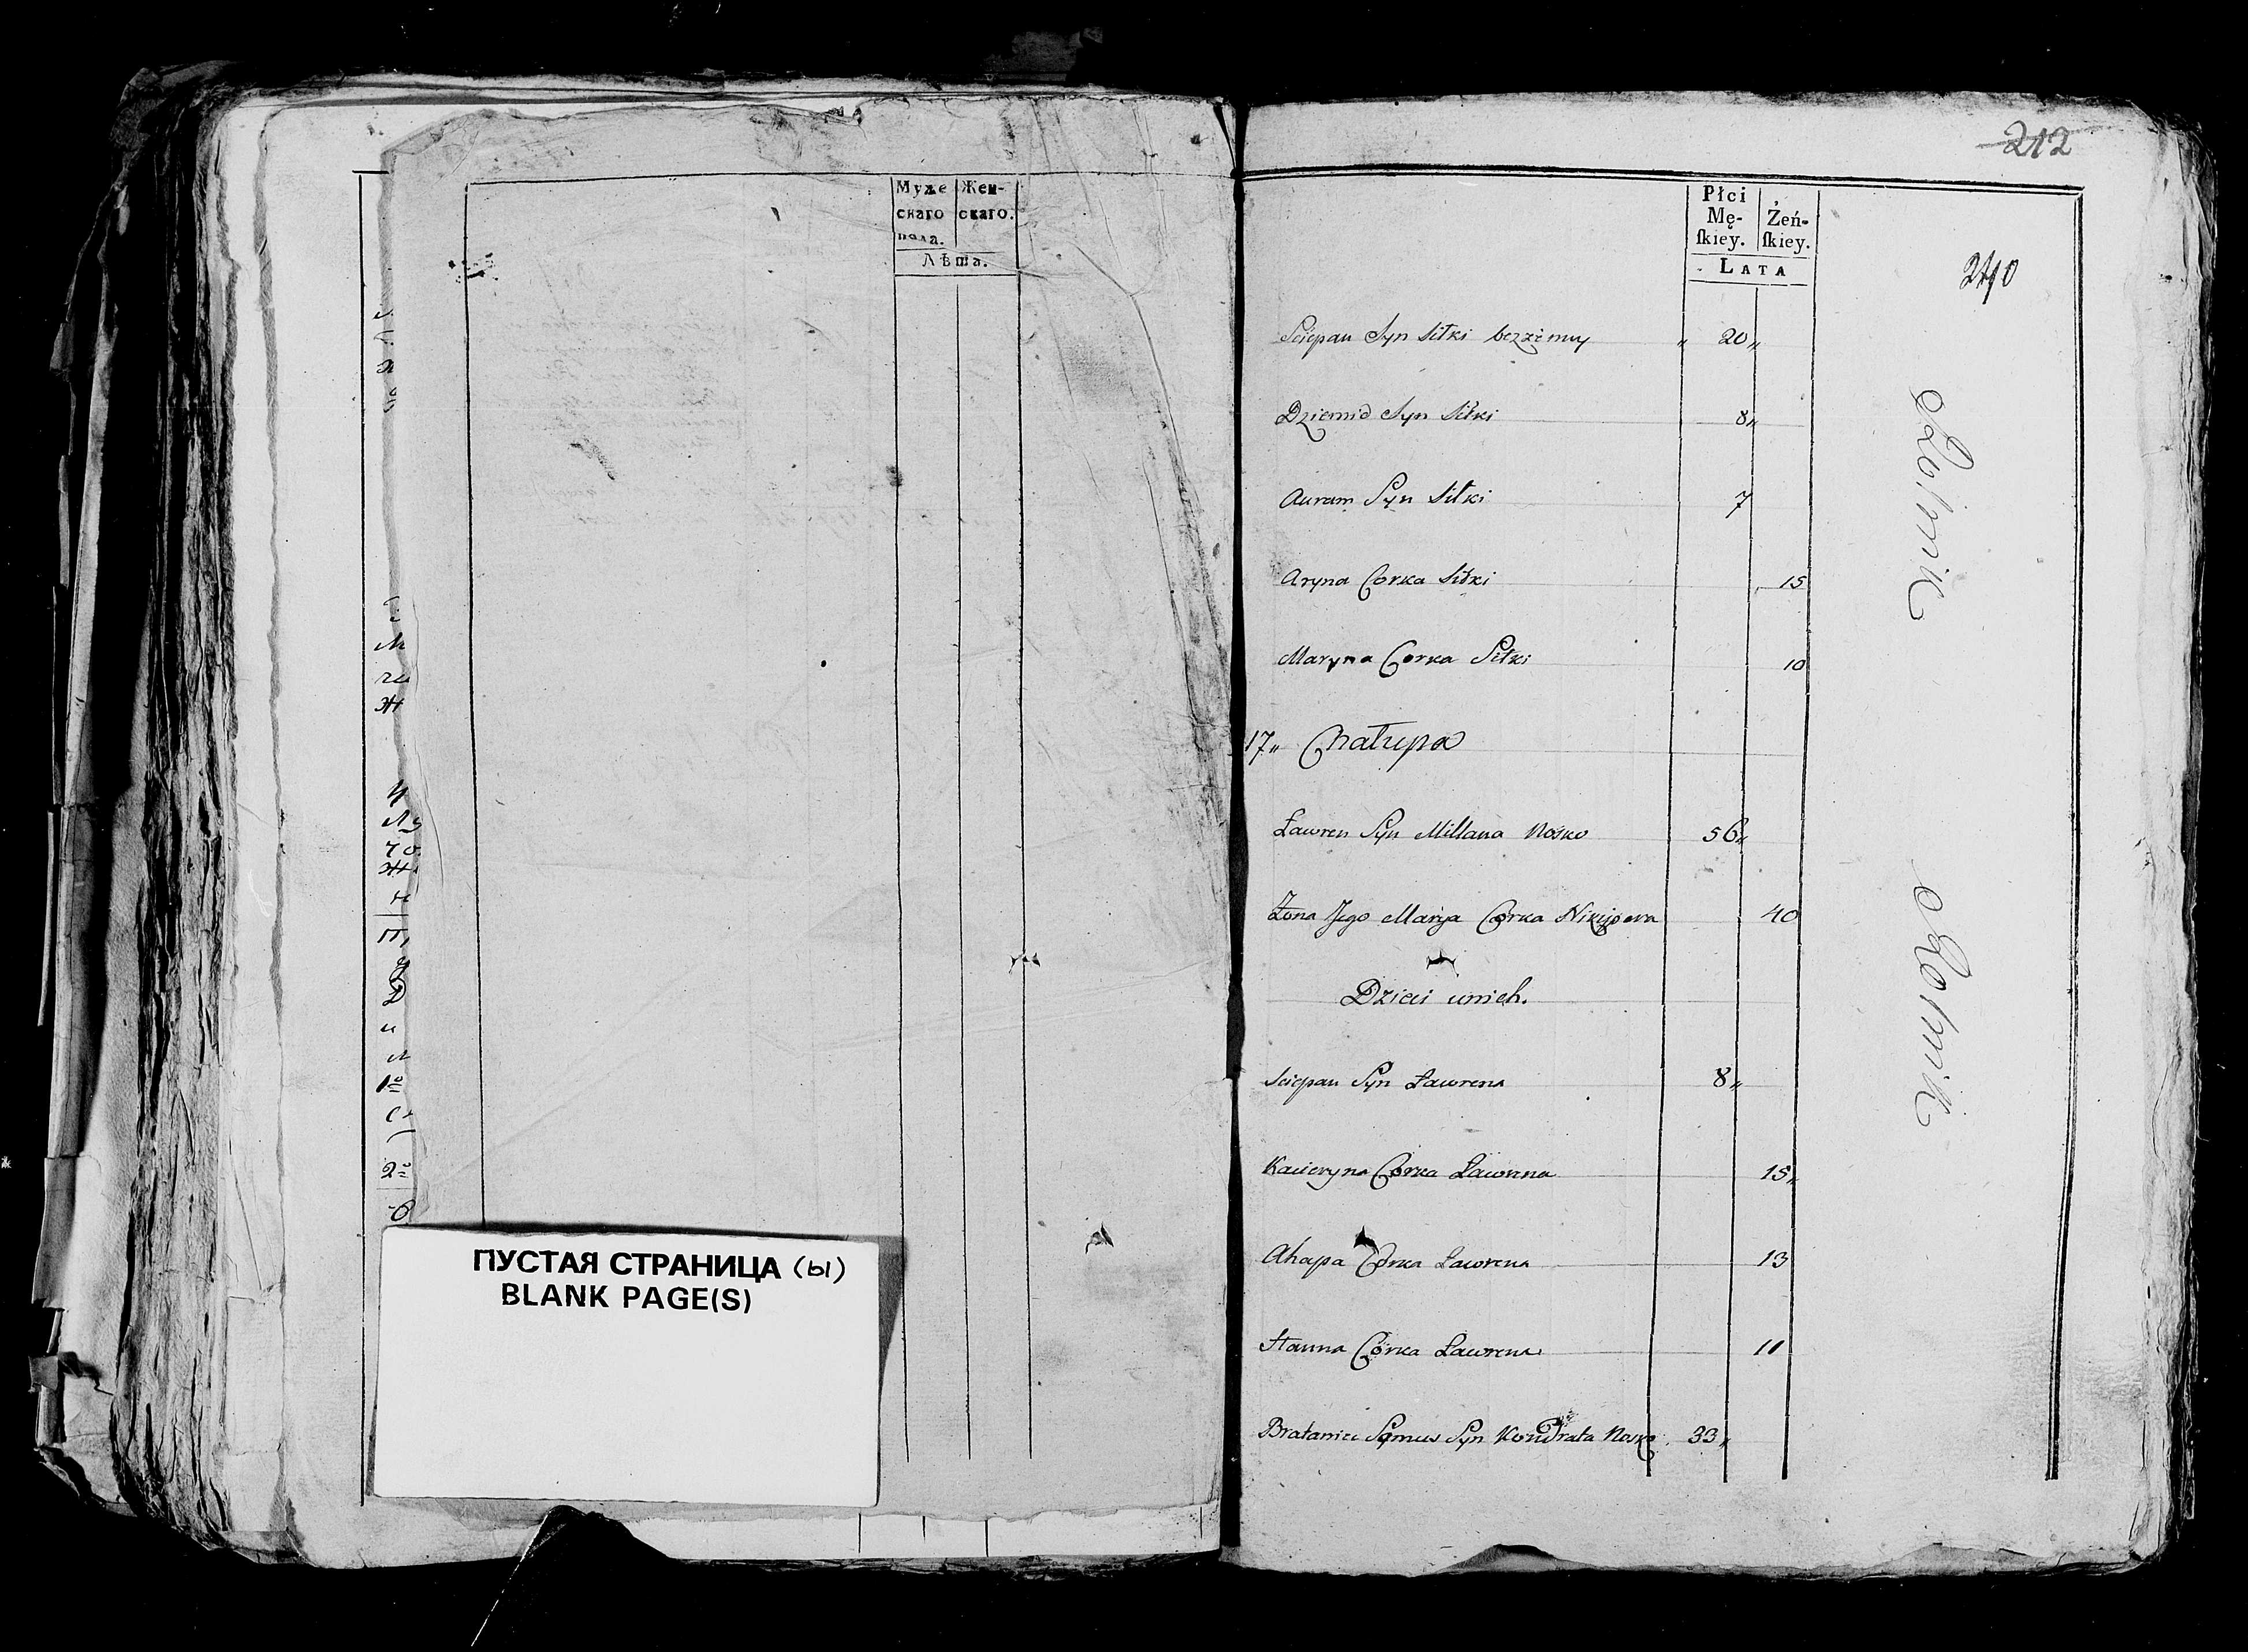 Муже
скаго
пола.
Жен-
скаго.
Лѣта.
ПУСТАЯ СТРАНИЦА (ы)
BLANK PAGE(S)
212
210
Płci
Mę-
ſkiey.
Żeń-
ſkiey.
LATA
Sciepan Syn Siłki bezżenny „ 20„
Dziemid Syn Siłki 8„
Auram Syn Siłki 7
Aryna Corka Siłki 15
Maryna Corka Siłki 10
Rolnik
17„ Chałupa
Ławren Syn Millana Nosko 56„
Żona Jego Marja Corka Nikipora 40
Dzieci unich.
Sciepan Syn Ławrena 8„
Kacieryna Corka Ławrena 15„
Ahapa Corka Ławrena 13
Hanna Corka Ławrena 11
Rolnik
Bratanicc Symus Syn Kondrata Nosko 33„